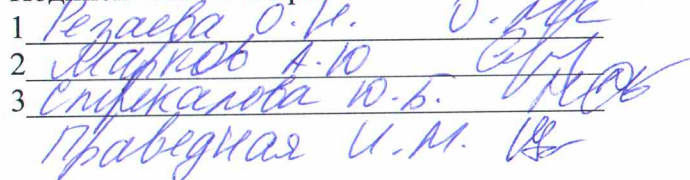 1 Резаева О.Н.
2 Марков А.Ю
3 Стрекалова Ю.Б.
Праведная И.М.